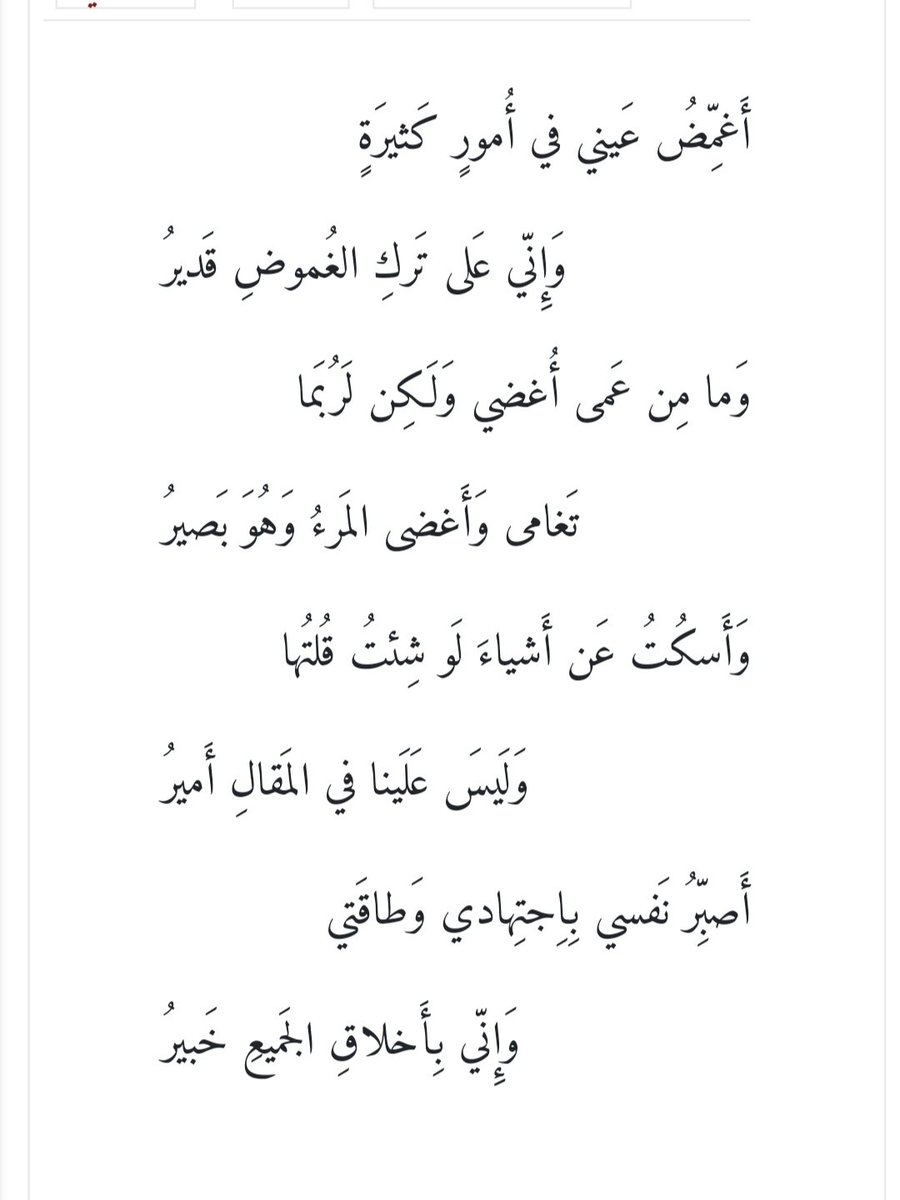 أَغمِّضُ عَيني في أُمورٍ كَثيرَةٍ
وَإِنّي عَلى تَركِ الغُموضِ قَديرُ
وَما مِن عَمى أُغضي وَلَكِن لَرُبَما
تَغامى وَأَغضى المَرءُ وَهُوَ بَصيرُ
وَأَسكُتُ عَن أَشياءَ لَو شِئتُ قُلتُها
وَلَيسَ عَلَينا في المَقالِ أَميرُ
أَصبِّرُ نَفسي بِاِجتِهادي وَطاقَتي
وَإِنّي بِأَخلاقِ الجَميعِ خَبيرُ